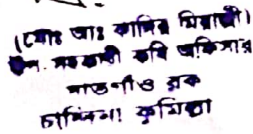 (মোঃ আঃ কাদির মিয়াজী)
উপ-সহকারী কৃষি অফিসার
ব্লক
চান্দিনা কুমিল্লা